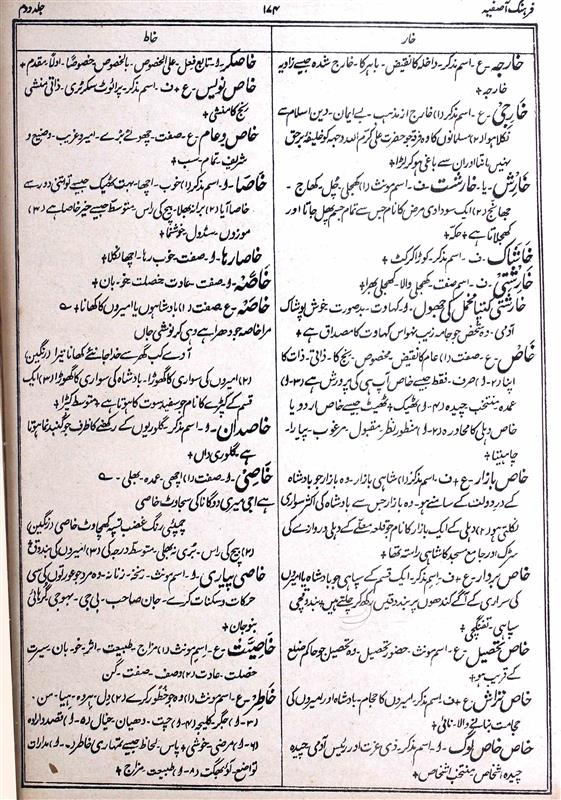 فرہنگ آصفیہ
۱۷۴
جلد دوم
خار
خاط
خارجہ - ع - اسم مذکر - داخلہ کا نقیض - باہر کا - خارج شدہ جیسے زاویہ
خارجہ +
خارجی - ع - اسم مذکر (۱) خارج از مذہب - بے ایمان - دین اسلام سے
نکلا ہوا (۲) مسلمانوں کا وہ فرقہ جو حضرت علی کرم اللہ وجہہ کو خلیفہ برحق
نہیں مانتا اور ان سے باغی ہو کر لڑا +
خارش - یا - خارشت - ف - اسم مونث (۱) کھجلی - چل - کھاج -
(۲) ایک سوداوی مرض کا نام جس سے تمام جسم پھل جاتا اور
کھجلاتا ہے + حکہ +
خاشاک - ف - اسم مذکر - کوڑا کرکٹ +
خارشتی - ف - اسم صفت - کھجلی والا - کھجلی بھرا +
خارشتی کتیا مخمل کی جھول - و - کہاوت - بدصورت خوش پوشاک
آدمی - وہ شخص جو جامہ زیب نہ ہو اس کہاوت کا مصداق ہے +
خاص - ع - صفت (۱) عام کا نقیض - مخصوص - نج کا - ذاتی - ذات کا
اپنا (۲ - و) صرف - فقط جیسے خاص آپ ہی کی پرورش ہے (۳ - و)
عمدہ منتخب چیدہ (۴ - و) ٹھیک - ٹھیٹ جیسے خاص اردو یا
خاص دہلی کا محاورہ (۷ - و) منظور نظر - مقبول - مرغوب - پیارا -
چاہیتا +
خاص بازار - ع + ف - اسم مذکر (۱) شاہی بازار - وہ بازار جو بادشاہ
کے در دولت کے سامنے ہو - وہ بازار جس سے بادشاہ کی اکثر سواری
نکلتی ہو (۲) دہلی کے ایک بازار کا نام جو قلعہ معلے کے دہلی دروازے کی
سڑک اور جامع مسجد کا شاہی راستہ تھا +
خاص بردار - ع + ف - اسم مذکر - ایک قسم کے سپاہی جو بادشاہ یا امیروں
کی سواری کے آگے کندھوں پر بندوقیں رکھ کر چلتے ہیں + بندوقچی
سپاہی - تفنگچی +
خاص تحصیل - ع - اسم مونث - حضور تحصیل - وہ تحصیل جو حاکم ضلع
کے قریب ہو +
خاص تراش - ع + ف - اسم مذکر - امیروں کا حجام - بادشاہ اور امیروں کی
حجامت بنانے والا - نائی +
خاص خاص لوگ - و - اسم مذکر - ذی عزت اور رئیس آدمی چیدہ
چیدہ اشخاص - منتخب اشخاص +
خاصکر - و - تابع فعل - علی الخصوص - بالخصوص - خصوصاً - اولاً - مقدم +
خاص نویس - ع + ف - اسم مذکر - پرائوٹ سکرٹری - ذاتی منشی
نج کا منشی +
خاص و عام - ع - صفت - چھوٹے بڑے - امیر و غریب - وضیع و
شریف - تمام - سب +
خاصا - و - اسم مذکر (۱) خوب - اچھا - بہت - ٹھیک جیسے تو اتنی دور سے
خاصا آیا (۲) برا نہ بھلا - بیچ کی راس - متوسط جیسے خیر خاصا ہے (۳)
موزوں - سڈول - خوشنما +
خاصا رہا - و - صفت - خوب رہا - اچھا نکلا +
خاصہ - ف - صفت - عادت - خصلت - خو - بان +
خاصہ - ع - صفت (۱) بادشاہوں یا امیروں کا کھانا + ے
مرا خاصہ جو دھرا ہے وہی کر نوشی جاں
آدے کب گھر سے خدا جانے کھانا تیرا (رنگین)
(۲) امیروں کی سواری کا گھوڑا - بادشاہ کی سواری کا گھوڑا (۳) ایک
قسم کے کپڑے کا نام جو سفید سوت کا ہوتا ہے + متوسط کپڑا +
خاصدان - و - اسم مذکر - گلوریوں کے رکھنے کا ظرف جو گنبد نما ہوتا
ہے - گلوری داں +
خاصی - و - صفت (۱) اچھی - عمدہ - بھلی - ے
ہے اجی میری دوگانا کی سجاوٹ خاصی
چپئی رنگ غضب تسپہ کھچاوٹ خاصی (رنگین)
(۲) بیچ کی راس - بری نہ بھلی - متوسط درجہ کی (۳) امیروں کی بندوق +
خاصی پیاری - و - اسم مونث - زنخہ - زنانہ - وہ مرد جو عورتوں کی سی
حرکات و سکنات کرے - جان صاحب - بی جی - بیوی جی
بنو جان +
خاصیت - ع - اسم مونث (۱) مزاج - طبیعت - اثر - خو - بان - سیرت
خصلت - عادت (۲) وصف - صفت - گن
خاطر - ع - اسم مونث (۱) وہ جو خطور کرے (۲) دل - ہردہ - ہیا - من -
(۳ - و) جگر - کلیجہ (۴ - و) چت - دھیان - خیال (۵ - و) قصد ارادہ
(۶ - و) مرضی - خوشی + پاس - لحاظ جیسے تمہاری خاطر (۷ - و) مداراں
تواضع - آؤ بھگت (۸ - و) طبیعت - مزاج +